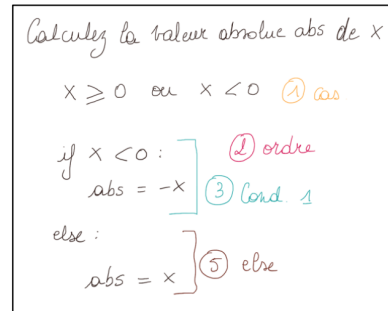 Calculez la valeur absolue abs de x
x ≥ 0 ou x < 0 ① cas
if x < 0 : ② ordre
abs = -x ③ Cond. 1
else :
abs = x ⑤ else